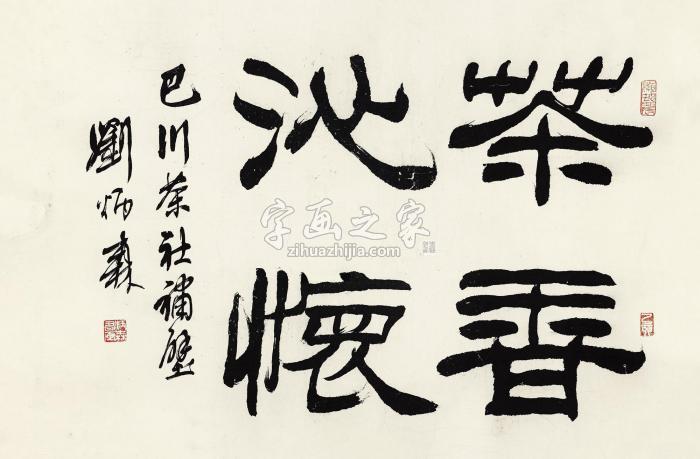 茶香
沁懷
巴川茶社補壁
劉炳森
字画之家
zihuazhijia.com